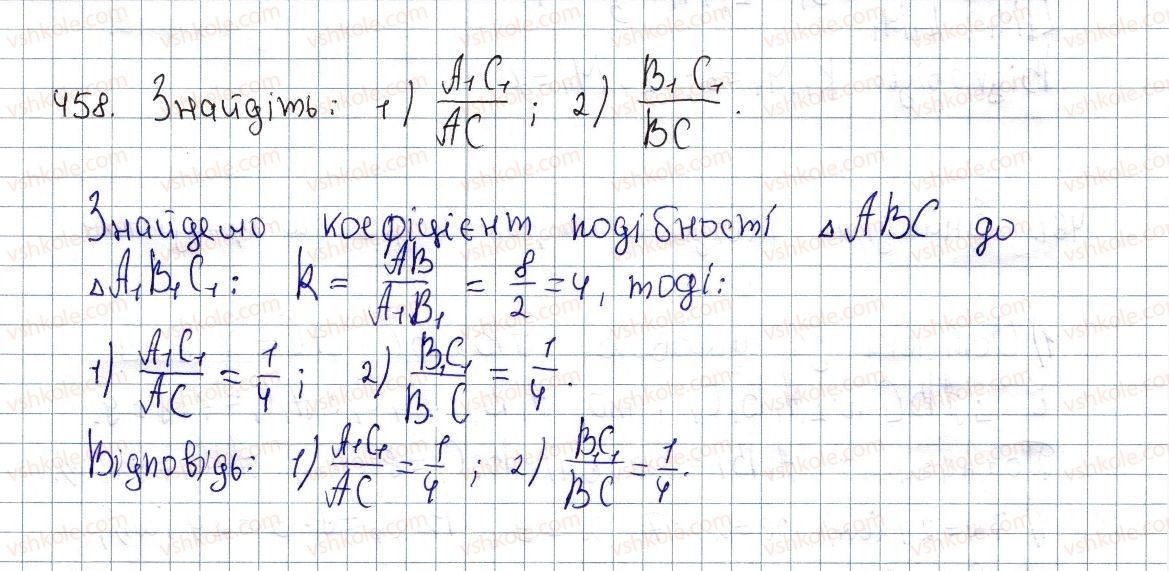 458. Знайдіть: 1) A₁C₁/AC ; 2) B₁C₁/BC.
Знайдемо коефіцієнт подібності △ABC до
△A₁B₁C₁: k = AB/A₁B₁ = 8/2 = 4, тоді:
1) A₁C₁/AC = 1/4 ; 2) B₁C₁/BC = 1/4.
Відповідь: 1) A₁C₁/AC = 1/4 ; 2) B₁C₁/BC = 1/4.
vshkole.com